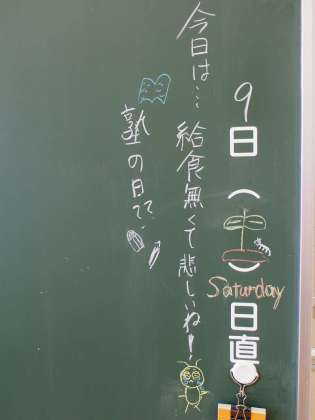 9日（土）
Saturday
日直
今日は…給食無くて悲しいね！
塾の日でで